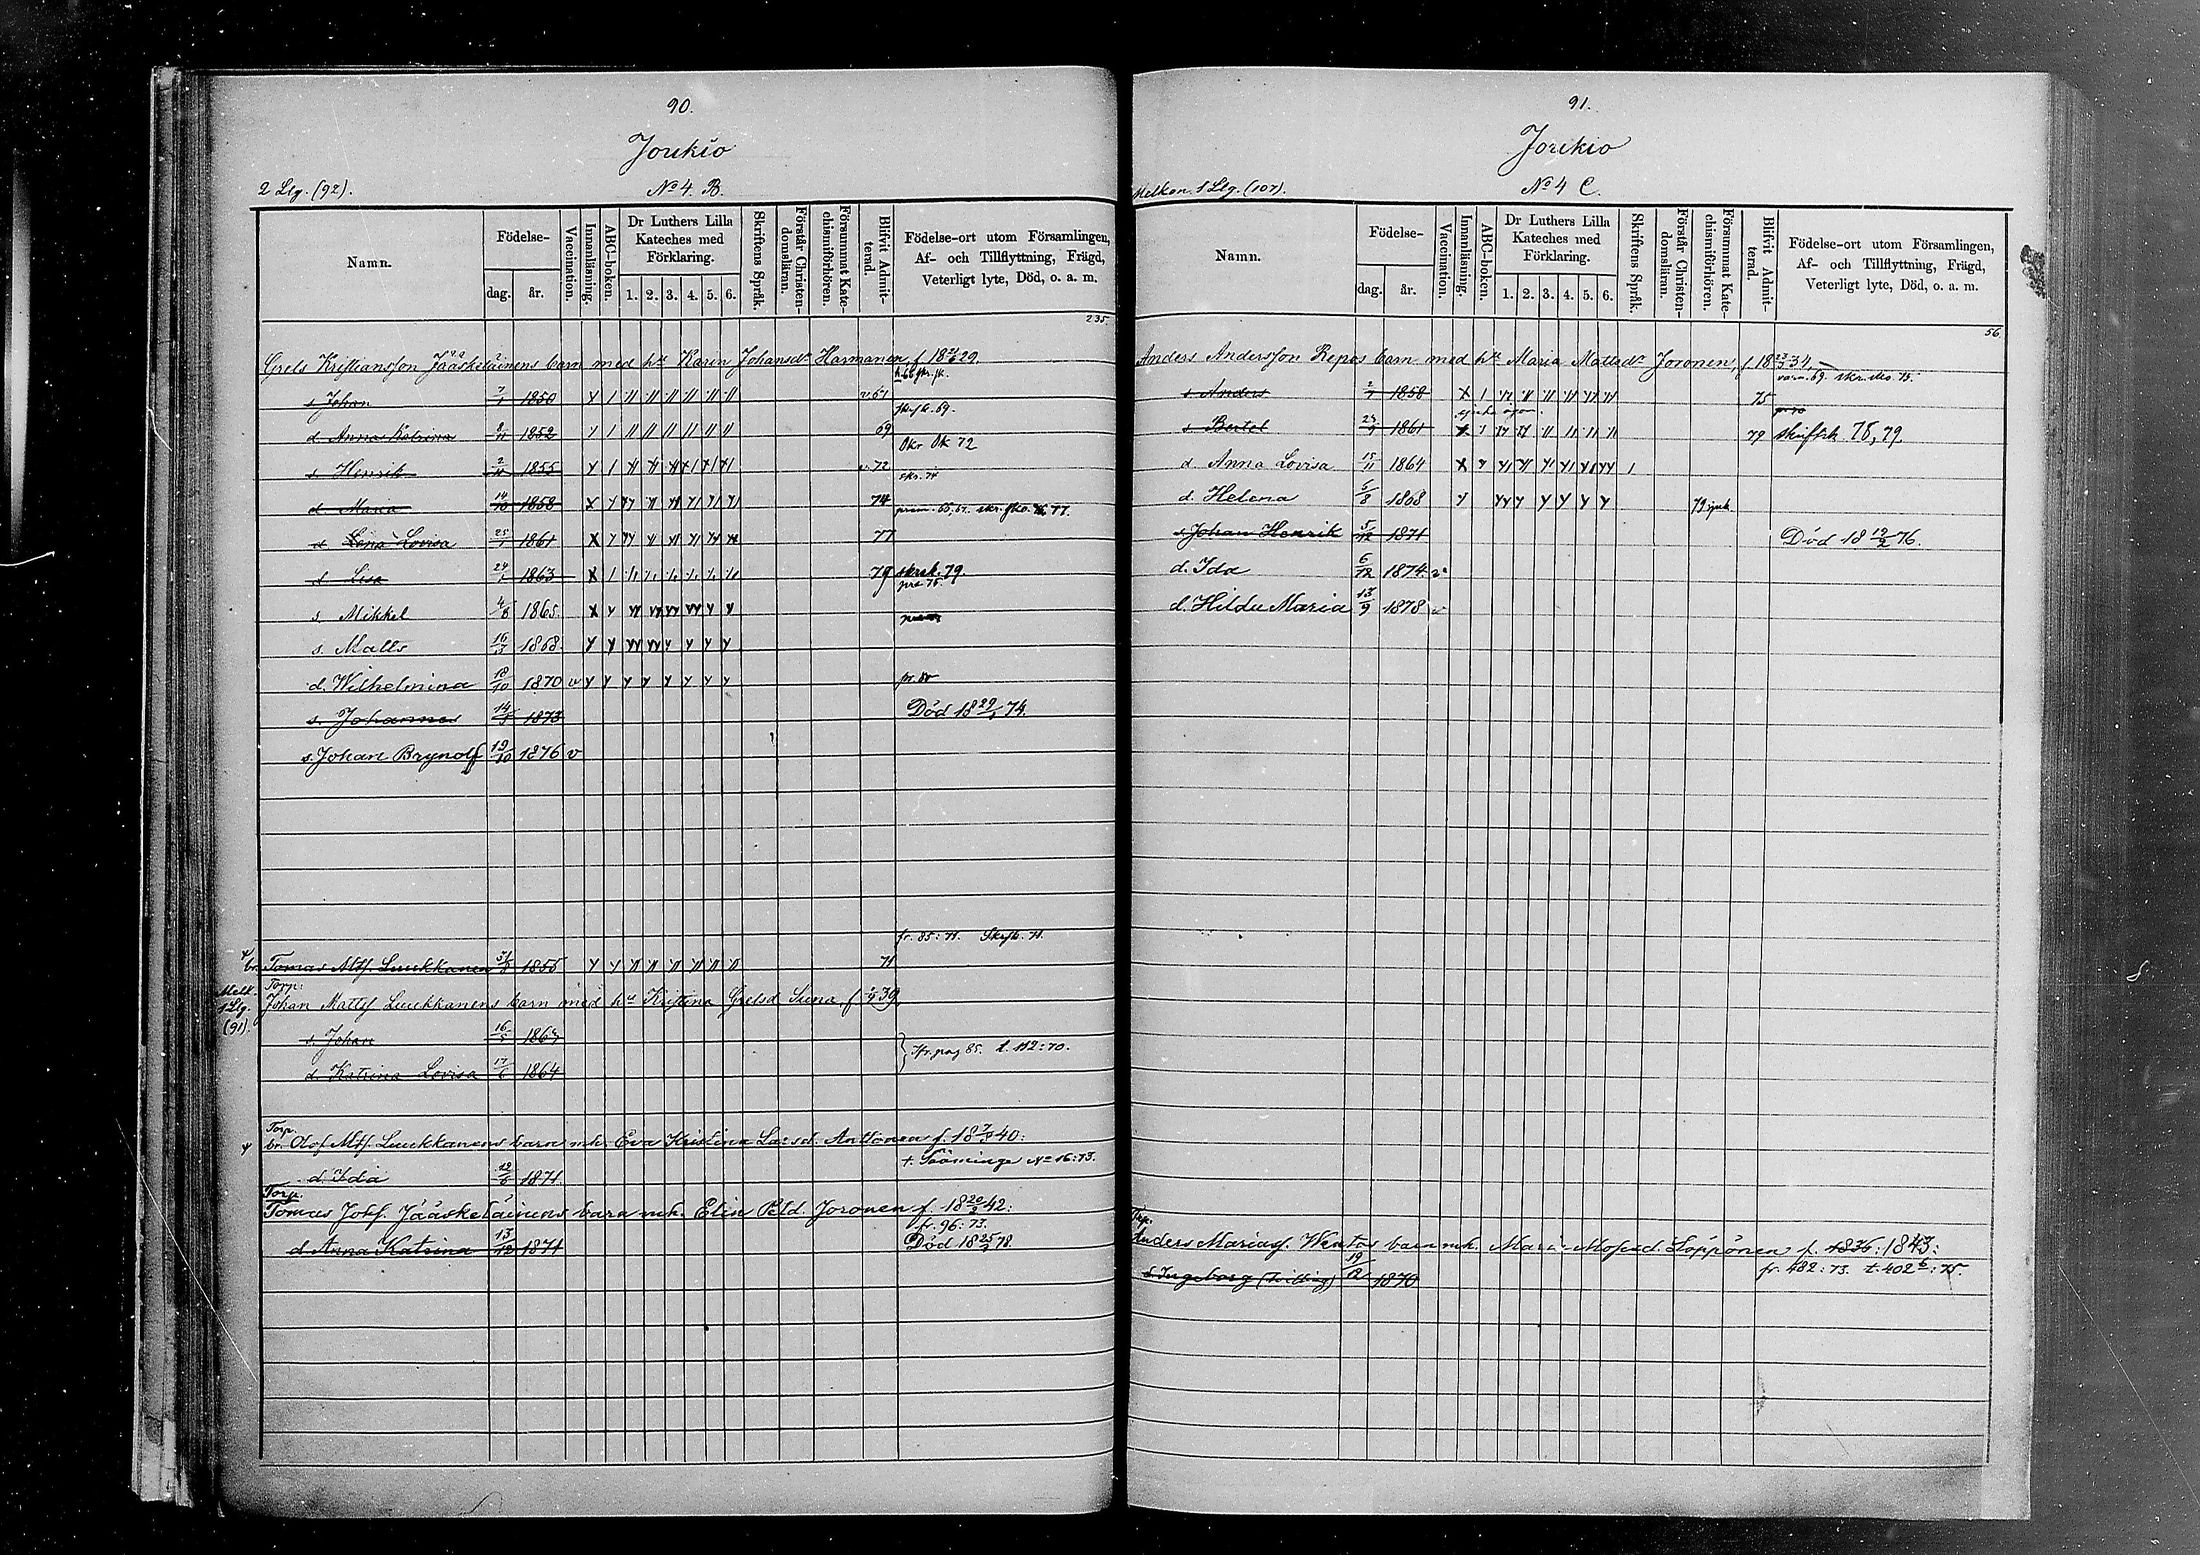 90.
Joukio
2 Llg. (92).
No 4. B.
Namn.
Födelse-
dag.
år.
Vaccination.
Innanläsning.
ABC-boken.
Dr Luthers Lilla
Kateches med
Förklaring.
1. 2. 3. 4. 5. 6.
Skriftens Språk.
Förstår Christen-
domsläran.
Försummat Kate-
chismiförhören.
Blifvit Admit-
terad.
Födelse-ort utom Församlingen,
Af- och Tillflyttning, Frägd,
Veterligt lyte, Död, o. a. m.
235.
Grels Kristiansson Jääskeläinens barn med hu Karin Johansdr Harmanen f. 18 29.
s. Johan 1850 v 67
skrsk. 69.
d. Anna Katrina 1852 69
Skr sk 72
s. Henrik 1855 v. 72
skr. 74
d. Maria 14/10 1858 74
d. Lena Lovisa 25/1 1861 77
d. Lisa 1863 79 skrsk. 79.
s. Mikkel 4/8 1865.
s. Matts 16/3 1868.
d. Wilhelmina 18/10 1870 v
s. Johannes 1873 Död 18 74.
s. Johan Brynolf 19/10 1876 v
fr. 85: 71. Skrsk. 71.
br. Tomas Mtss. Luukkanen 1855 71
Melk.
1 Llg.
(91).
Torp:
Johan Mattss Luukkanens barn med hu Kristina Grelsd Suna, f. 39
s. Johan 16/5 1867
fr. pag 85. t. 112: 70.
d. Katrina Lovisa 17/6 1864
Torp.
br. Olof Mtss. Luukkanens barn mh. Eva Kristina Larsd. Anttonen f. 18 40:
t. Sääminge No 16: 73.
d. Ida 1871.
Torp.
Tomas Johss. Jääskeläinens barn mh. Elin Petd. Joronen f. 18 20/2 42:
fr. 96: 73.
d. Anna Katrina 13/12 1871 Död 18 78.
91.
Joukio
Melkon. 1 Llg. (107).
No 4 C.
Namn.
Födelse-
dag.
år.
Vaccination.
Innanläsning.
ABC-boken.
Dr Luthers Lilla
Kateches med
Förklaring.
1. 2. 3. 4. 5. 6.
Skriftens Språk.
Förstår Christen-
domsläran.
Försummat Kate-
chismiförhören.
Blifvit Admit-
terad.
Födelse-ort utom Församlingen,
Af- och Tillflyttning, Frägd,
Veterligt lyte, Död, o. a. m.
56.
Anders Andersson Repos barn med hu Maria Mattsdr Joronen, f. 18 23/3 34,
s. Anders 1858 75
sjuka ögon.
s. Bertel 1861 79 skriftsk 78, 79.
d. Anna Lovisa 15/11 1864
d. Helena 1868 79 sjuk
s. Johan Henrik 5/12 1871 Död 18 76.
d. Ida 6/12 1874. v
d. Hilda Maria 13/9 1878 v
Torp.
Anders Mariass. Wentos barn mh. Maria Mosesd. Loppönen f. 1836: 1843:
fr. 482: 73. t. 402: 75.
d. Ingeborg (Tvilling) 1870